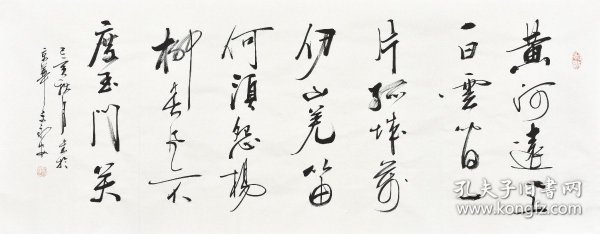 黄河遠上
白雲間一
片孤城萬
仞山羌笛
何須怨楊
柳春風不
度玉門关
己亥秋月書於
京華
孔夫子旧书网
kongfz.com